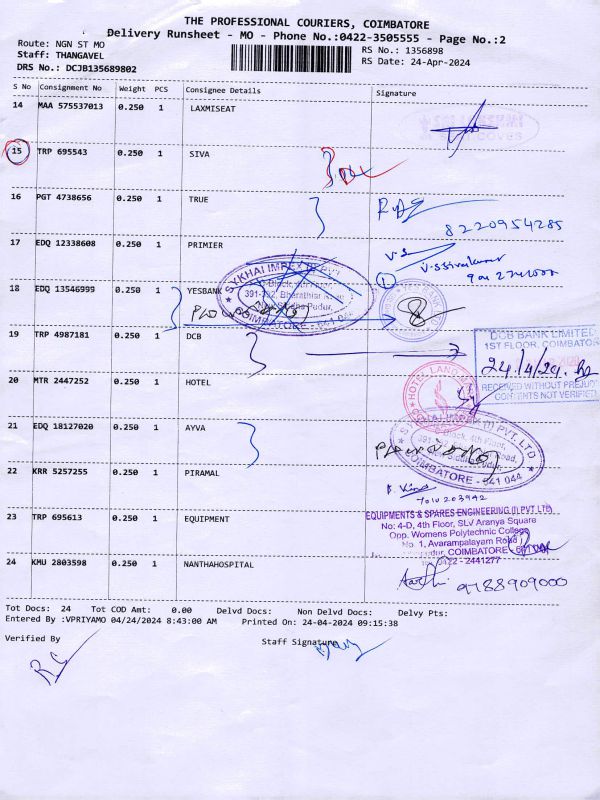 THE PROFESSIONAL COURIERS, COIMBATORE
Delivery Runsheet - MO - Phone No.:0422-3505555 - Page No.:2
Route: NGN ST MO
RS No.: 1356898
Staff: THANGAVEL
RS Date: 24-Apr-2024
DRS No.: DCJB135689802
S No Consignment No Weight PCS Consignee Details Signature
14 MAA 575537013 0.250 1 LAXMISEAT
15 TRP 695543 0.250 1 SIVA
16 PGT 4738656 0.250 1 TRUE
8220954285
17 EDQ 12338608 0.250 1 PRIMIER
V.S
V.S Sivakumar
1
SYKHAI IMPEX
391-392, Bharathiar
COIMBATORE - 641 044
18 EDQ 13546999 0.250 1 YESBANK
19 TRP 4987181 0.250 1 DCB
DCB BANK LIMITED
1ST FLOOR, COIMBATOR
24/4/24
RECEIVED WITHOUT PREJU
CONTENTS NOT VERIFIED
20 MTR 2447252 0.250 1 HOTEL
HOTEL LAND
21 EDQ 18127020 0.250 1 AYVA
(I) PVT. LTD
Block, 4th Floor,
COIMBATORE - 641 044
22 KRR 5257255 0.250 1 PIRAMAL
7010203942
23 TRP 695613 0.250 1 EQUIPMENT
EQUIPMENTS & SPARES ENGINEERING (I) PVT LTD
No: 4-D, 4th Floor, SLV Aranya Square
Opp. Womens Polytechnic College
No. 1, Avarampalayam Road
COIMBATORE
0422 - 2441277
24 KMU 2803598 0.250 1 NANTHAHOSPITAL
9788909000
Tot Docs: 24 Tot COD Amt: 0.00 Delvd Docs: Non Delvd Docs: Delvy Pts:
Entered By :VPRIYAMO 04/24/2024 8:43:00 AM Printed On: 24-04-2024 09:15:38
Verified By
Staff Signature